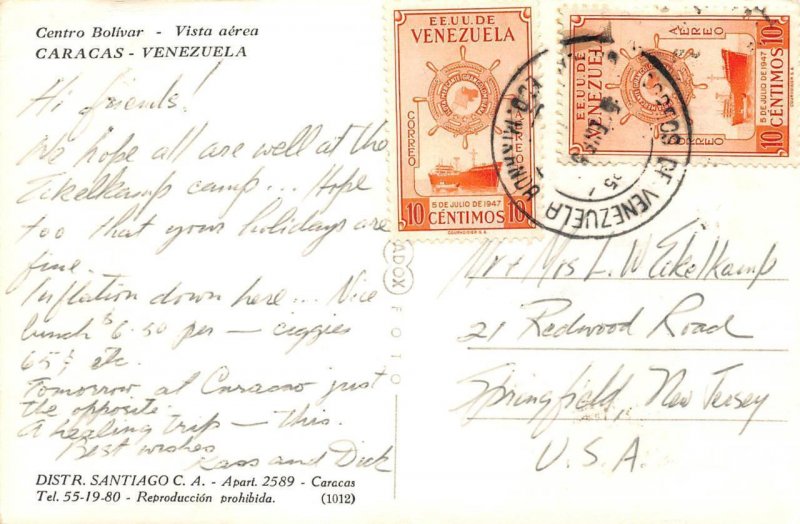 Centro Bolívar - Vista aérea
CARACAS - VENEZUELA
Hi friends!
We hope all are well at the
Eikelkamp camp... Hope
too that your holidays are
fine.
Inflation down here... Nice
lunch $6.50 per — ciggies
65¢ etc.
Tomorrow at Curacao just
the opposite.
A healing trip — this.
Best wishes
Kass and Dick
DISTR. SANTIAGO C. A. - Apart. 2589 - Caracas
Tel. 55-19-80 - Reproducción prohibida. (1012)
ADOX
FOTO
EE.UU.DE
VENEZUELA
CORREO
AEREO
5 DE JULIO DE 1947
10 CÉNTIMOS 10
EE.UU.DE
VENEZUELA
CORREO
AEREO
5 DE JULIO DE 1947
10 CÉNTIMOS 10
CORREOS DE VENEZUELA
Mr + Mrs L. W Eikelkamp
21 Redwood Road
Springfield, New Jersey
U.S.A.